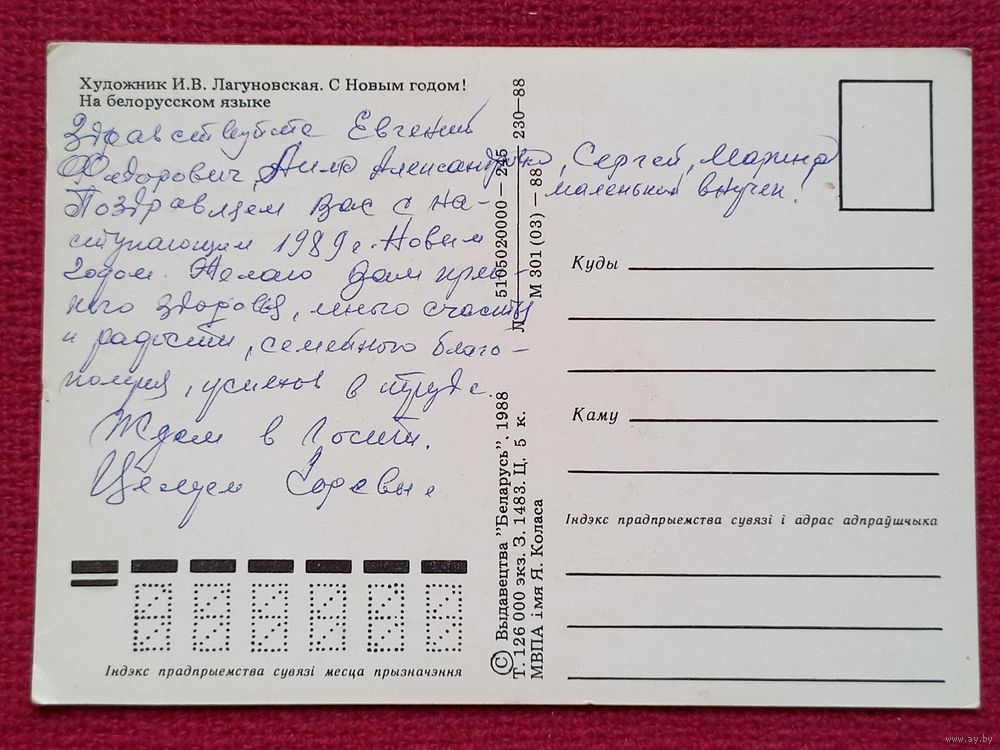 Художник И.В. Лагуновская. С Новым годом!
На белорусском языке
Здравствуйте Евгений
Федорович, Александровна, Сергей, Марина
маленький внучек!
Поздравляем Вас с на-
ступающим 1989 г. Новым
годом. Желаю Вам креп-
кого здоровья, много счастья
и радости, семейного благо-
получия, успехов в труде.
Ждем в гости.
Целуем
Індэкс прадпрыемства сувязі месца прызначэння
© Выдавецтва "Беларусь". 1988 5105020000—245
Т. 126 000 экз. З. 1483. Ц. 5 к. 230—88
МВПА імя Я. Коласа М 301 (03) — 88
Куды
Каму
Індэкс прадпрыемства сувязі і адрас адпраўшчыка
www.ay.by